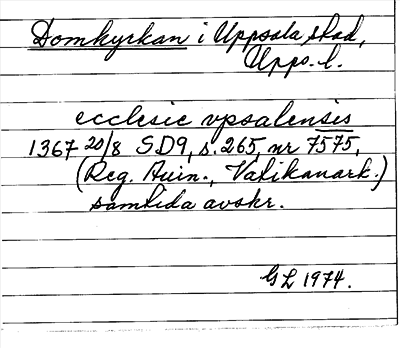 Domkyrkan i Uppsala stad,
Upps. l.
ecclesie vpsalensis
1367 20/8 SD9, s. 265, nr 7575,
(Reg. Avin., Vatikanark.)
samtida avskr.
GL 1974.